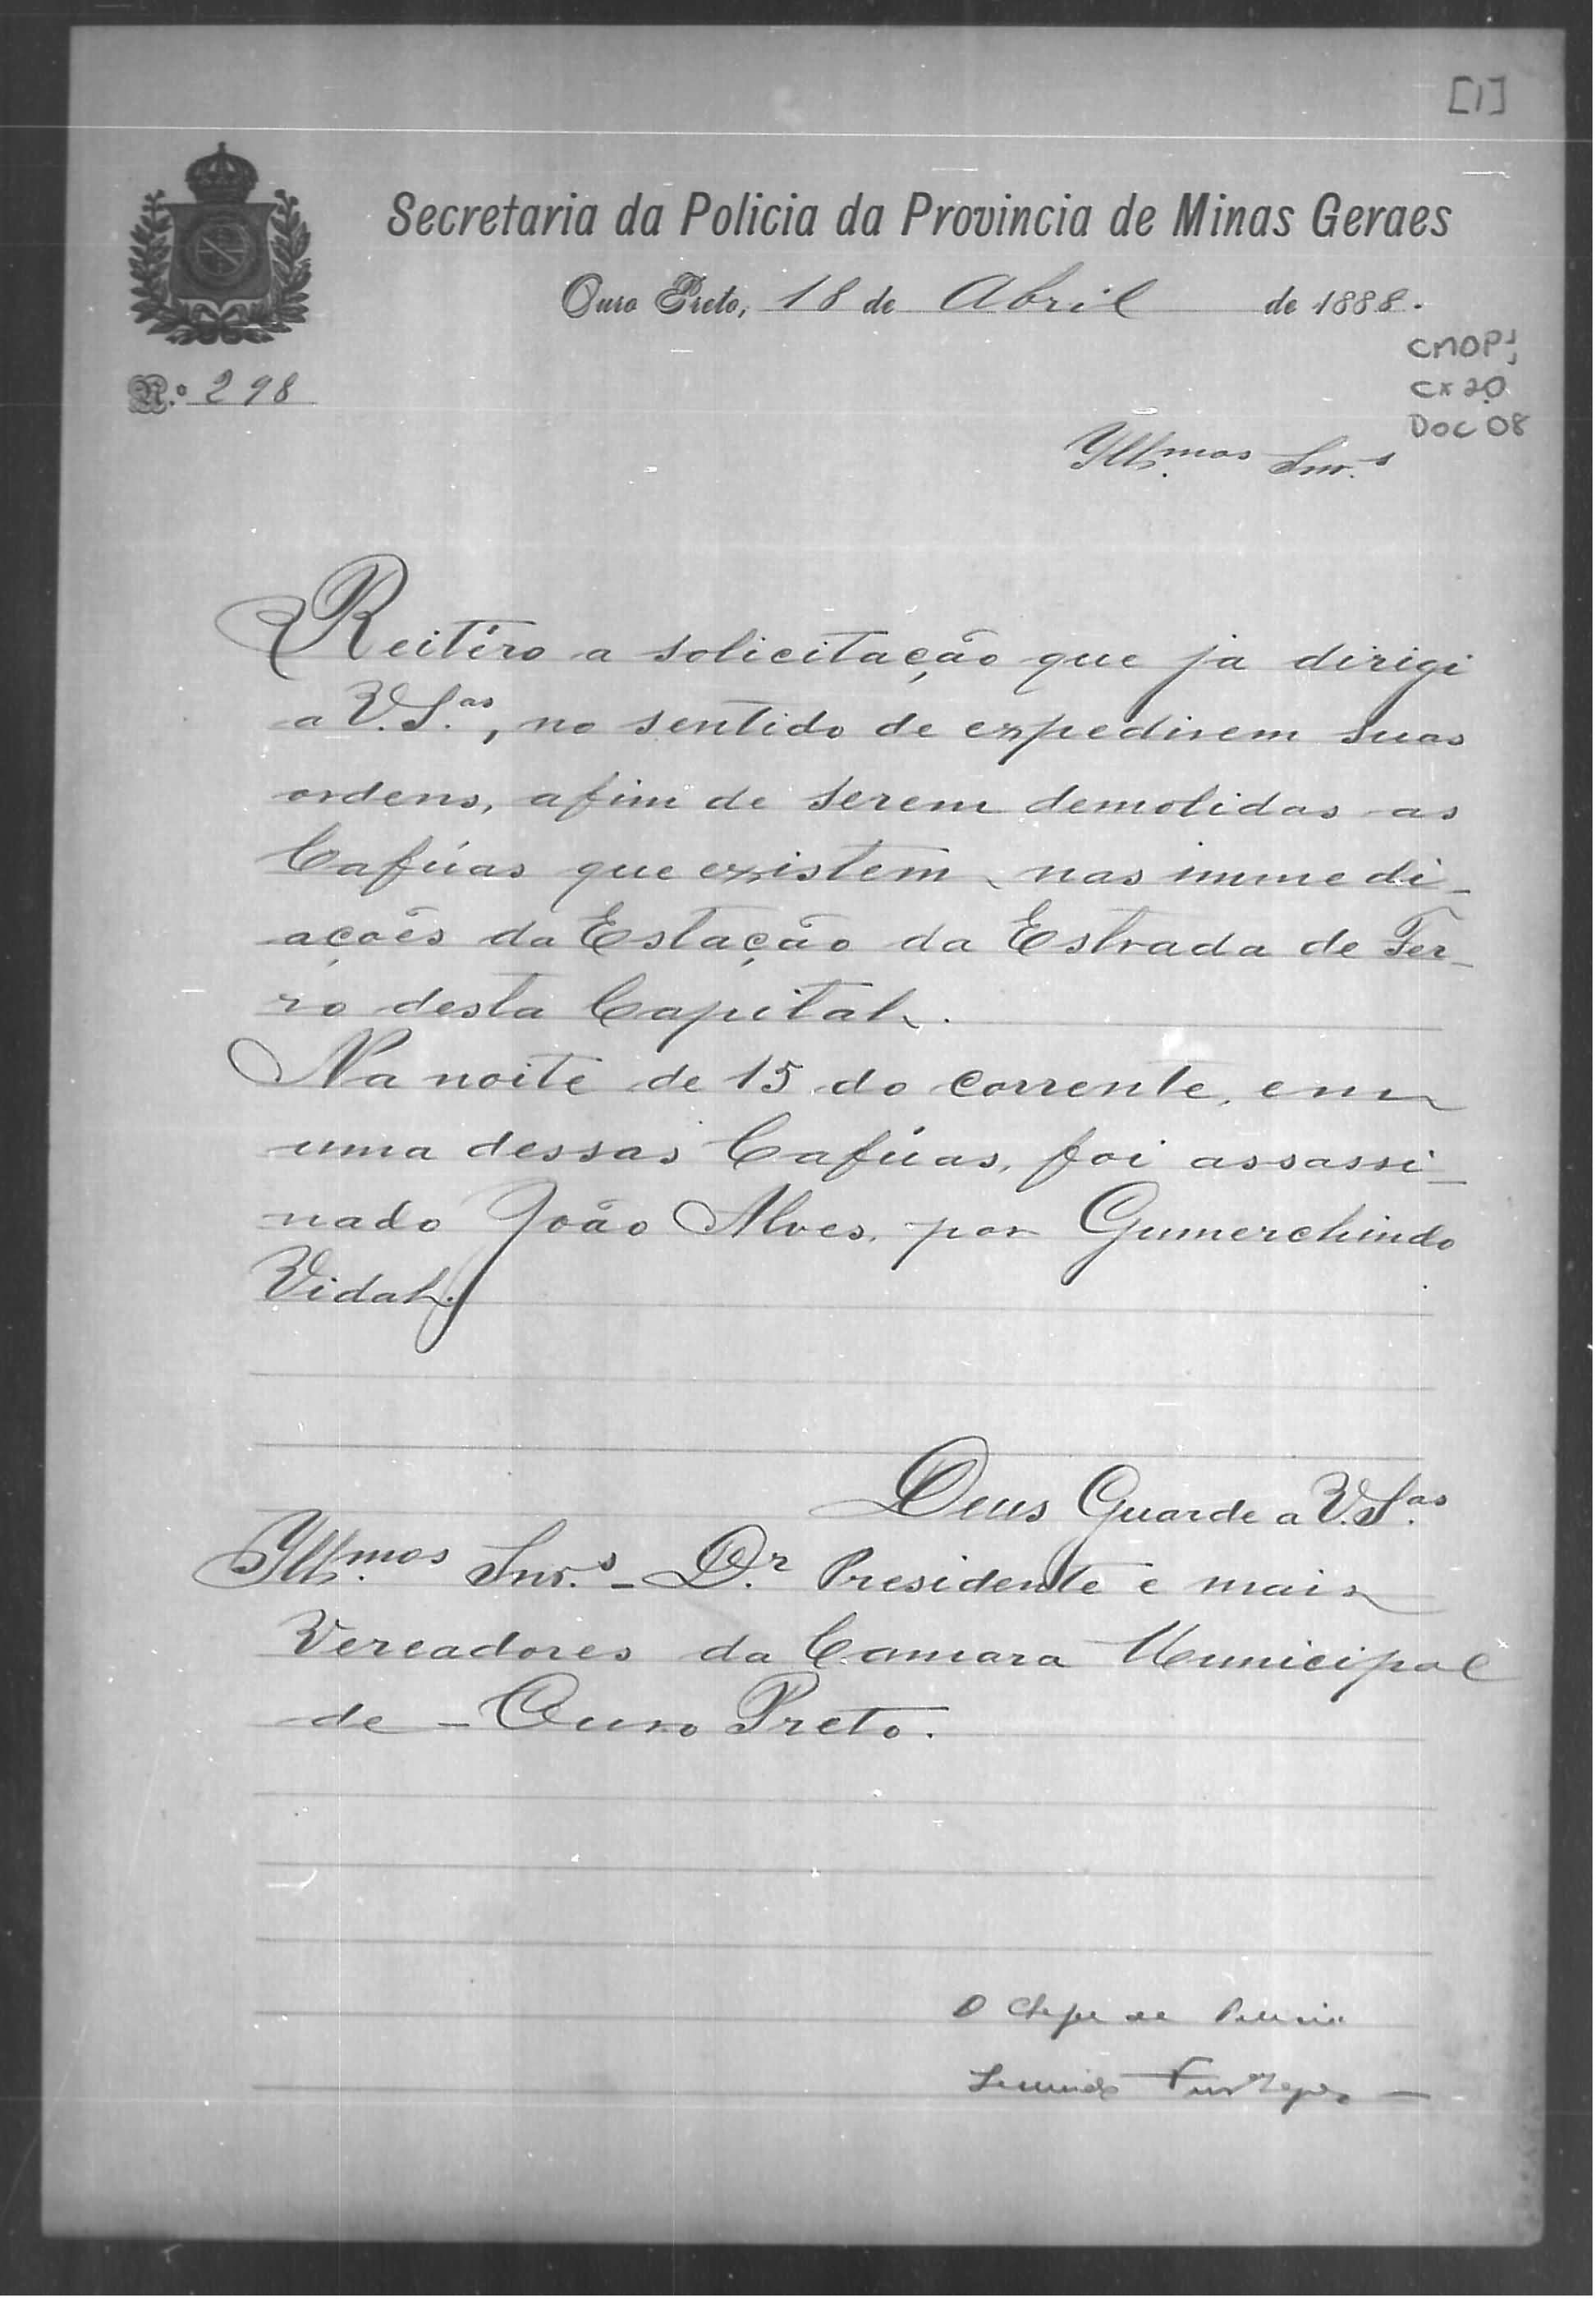 [1]
Secretaria da Policia da Provincia de Minas Geraes
Ouro Preto, 18 de Abril de 1888.
CMOP;
CX 20
DOC 08
N.º 298
Illmos. Snr.s
Reitéro a solicitação que ja dirigi
a V.S.as, no sentido de expedirem suas
ordens, afim de serem demolidas as
Cafúas que existem nas immedi-
ações da Estação da Estrada de Fer-
ro desta Capital.
Na noite de 15 do corrente, em
uma dessas Cafúas, foi assassi-
nado João Alves, por Gumerchindo
Vidal.
Deus Guarde a V.S.as
Illmos. Snr.s - D.r Presidente e mais
Vereadores da Camara Municipal
de - Ouro Preto.
O Chefe de Policia